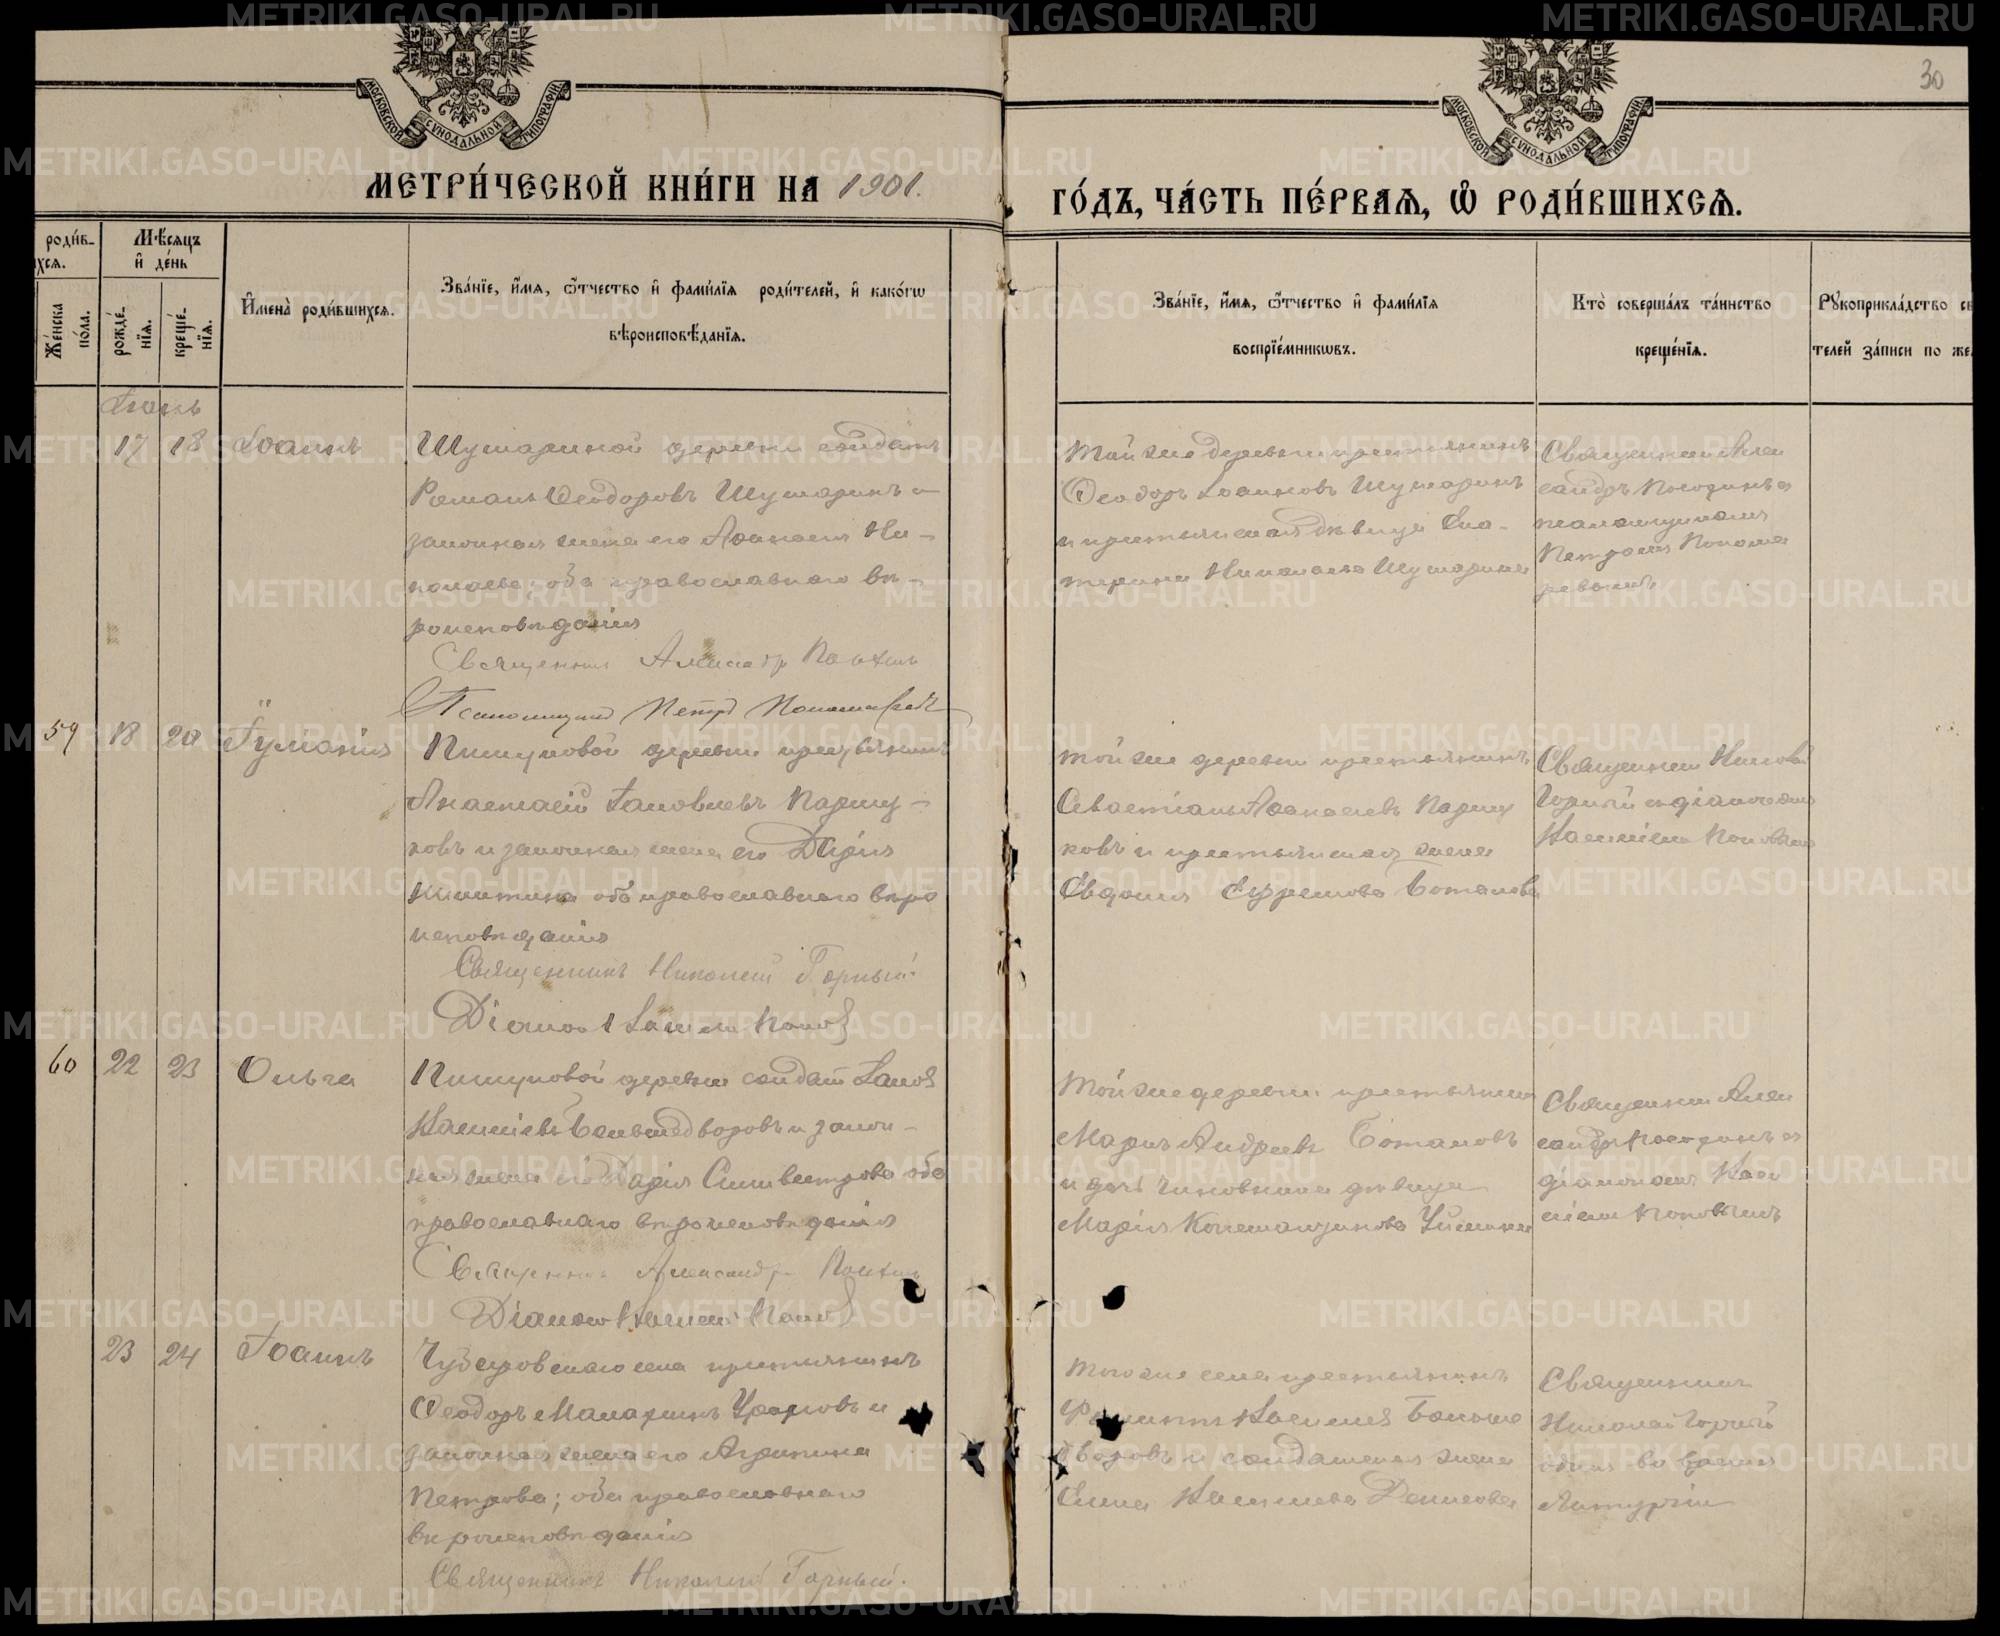 МОСКОВСКОЙ СУНОДАЛЬНОЙ ТИПОГРАФІИ
МОСКОВСКОЙ СУНОДАЛЬНОЙ ТИПОГРАФІИ
30
МЕТРИ́ЧЕСКОЙ КНИ́ГИ НА 1901.
ГО́ДЪ, ЧА́СТЬ ПЕ́РВАЯ, Ѡ РОДИ́ВШИХСЯ.
роди́в-
хся.
Же́нска по́ла.
Мѣ́сяцъ и де́нь
рожде́нїя.
креще́нїя.
И҆мена̀ роди́вшихся.
Зва́нїе, и҆́мя, ѻ҆́тчество и҆ фами́лїя роди́телей, и҆ како́гѡ
вѣроисповѣ́данїя.
Зва́нїе, и҆́мя, ѻ҆́тчество и҆ фами́лїя
воспрїе́мникѡвъ.
Кто̀ соверша́лъ та́инство
креще́нїя.
Рꙋкоприкла́дство св
телей за́писи по же
Іюнь
17 18 Іоаннъ
Шушариной деревни солдатъ
Романъ Ѳеодоровъ Шушаринъ и
законная жена его Аѳанасія Ни-
колаева; оба православнаго вѣ-
роисповѣданія
Священник Александр
Псаломщикъ Петръ Пономаревъ
Той же деревни крестьянинъ
Ѳеодоръ Іоанновъ Шушаринъ
и крестьянская дѣвица Ека-
терина Николаева Шушарина
Священникъ Алек
сандръ съ
псаломщикомъ
Петромъ Понома
ревымъ
59 18 20 Іуліанія
деревни крестьянинъ
Анастасій Іаковлевъ Паршу-
ковъ и законная жена его Дарія
Никитина оба православнаго вѣро
исповѣданія
Священникъ Николай Горный.
Діаконъ Касьян Попов
Той же деревни крестьянинъ
Севастіанъ Аѳанасіевъ Паршу
ковъ и крестьянская жена
Евдокия Ефремова Боталова
Священник Николай
Горный съ діакономъ
Поповымъ
60 22 23 Ольга
деревни солдат Іаков
Большедворовъ и закон-
ная жена его Дарія Сильвестрова оба
православнаго вѣроисповѣданія
Священник Александр
Діакон Попов
Той же деревни крестьянин
Маркъ Андреевъ Боталовъ
и дочь чиновника дѣвица
Марія Константинова
Священник Алек
сандръ съ
діакономъ Касс
Поповымъ
23 24 Іоаннъ
села крестьянинъ
Ѳеодоръ Макаринъ и
законная жена его Агрипина
Петрова; оба православнаго
вѣроисповѣданія
Священникъ Николай Горный.
Того же села крестьянинъ
Больше
дворовъ и солдатская жена
Елена Денисова
Священникъ
Николай Горный
одинъ во время
Литургіи
METRIKI.GASO-URAL.RU